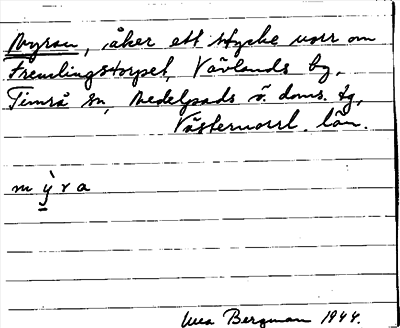 Myran, åker ett stycke norr om
Fremlingstorpet, Vävlands by,
Timrå sn, Medelpads ö. doms. tg,
Västernorrl. län.
m ỳ r a
Bergman 1944.